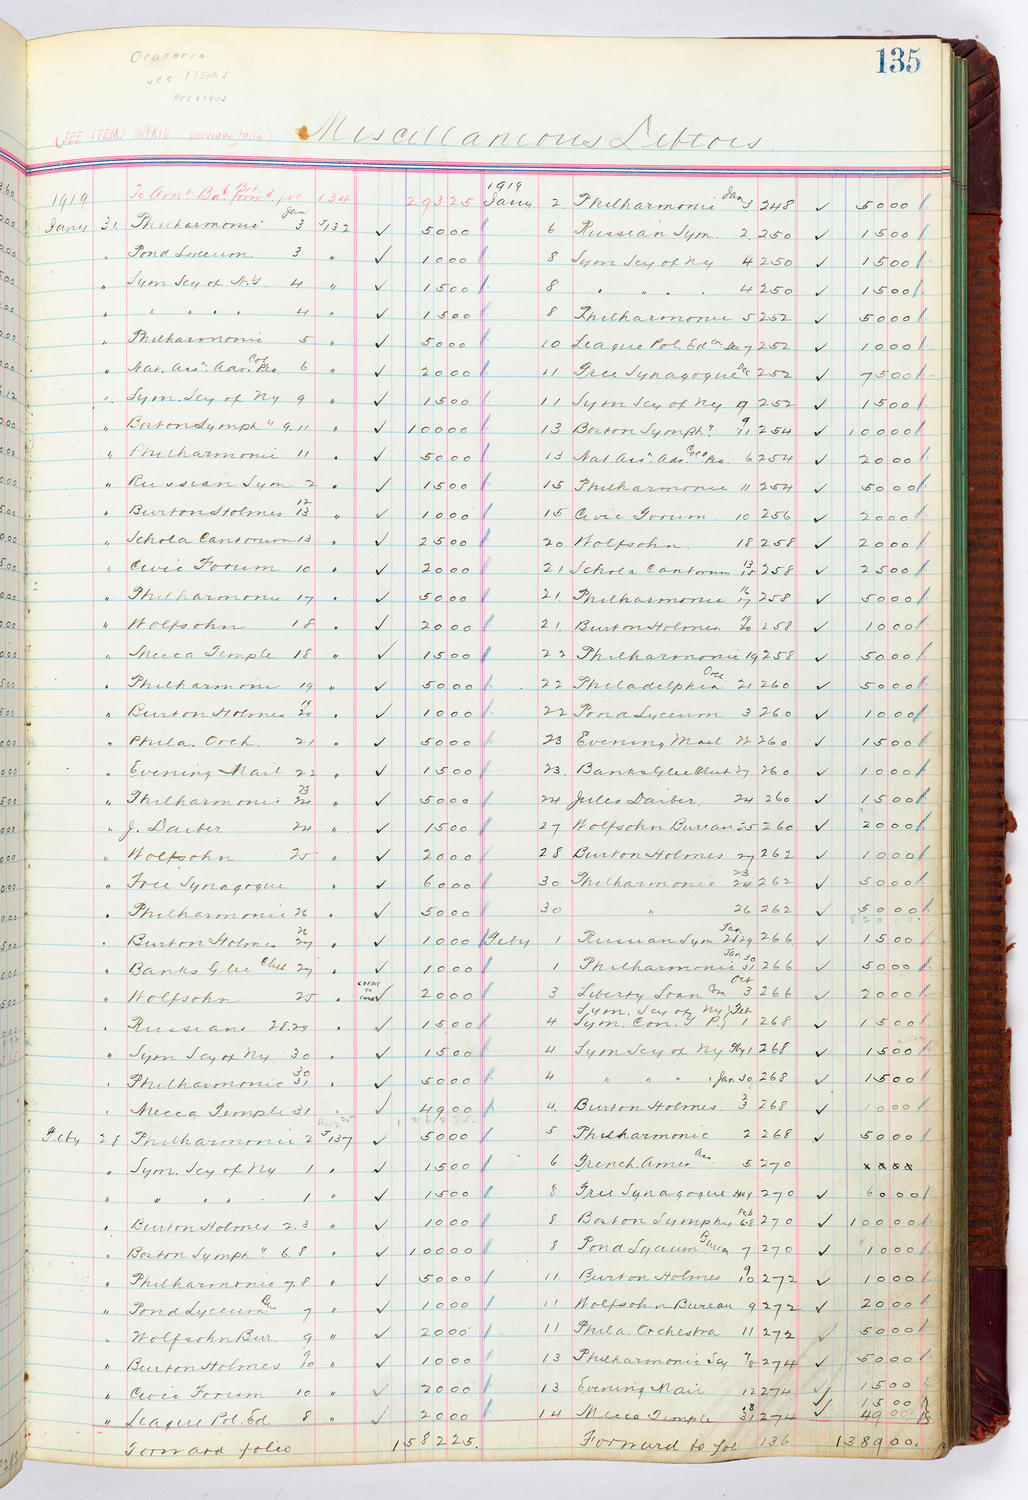 135
Oratorio
see ITEMS
previous
(SEE ITEMS UNPAID previous folio)
Miscellaneous Debtors
1919 To Amt Bal. Brt. forw'd fol 134 29325
Jany 31 Philharmonic Jan 3 J132 ✓ 5000
" Pond Lyceum 3 " ✓ 1000
" Sym Scy of N.Y 4 " ✓ 1500
" " " " " 4 " ✓ 1500
" Philharmonic 5 " ✓ 5000
" Nat. Ass. Adv. Col. Peo. 6 " ✓ 2000
" Sym. Scy of Ny 9 " ✓ 1500
" Boston Symph " 9.11 " ✓ 10000
" Philharmonic 11 " ✓ 5000
" Russian Sym 2 " ✓ 1500
" Burton Holmes 12 13 " ✓ 1000
" Schola Cantorum 13 " ✓ 2500
" Civic Forum 10 " ✓ 2000
" Philharmonic 17 " ✓ 5000
" Wolfsohn 18 " ✓ 2000
" Mecca Temple 18 " ✓ 1500
" Philharmonic 19 " ✓ 5000
" Burton Holmes 19 20 " ✓ 1000
" Phila. Orch. 21 " ✓ 5000
" Evening Mail 22 " ✓ 1500
" Philharmonic 23 24 " ✓ 5000
" J. Daiber 24 " ✓ 1500
" Wolfsohn 25 " ✓ 2000
" Free Synagogue " ✓ 6000
" Philharmonic 26 " ✓ 5000
" Burton Holmes 26 27 " ✓ 1000
" Banks Glee Club 27 " ✓ 1000
" Wolfsohn 25 " CREDIT TO ✓ 2000
" Russians 28.29 " ✓ 1500
" Sym Scy of Ny 30 " ✓ 1500
" Philharmonic 30 31 " ✓ 5000
" Mecca Temple 31 " ✓ 4900
Feby 28 Philharmonic 2 J137 ✓ 5000
" Sym. Scy of Ny 1 " ✓ 1500
" " " " " 1 " ✓ 1500
" Burton Holmes 2.3 " ✓ 1000
" Boston Symph " 6.8 " ✓ 10000
" Philharmonic 7.8 " ✓ 5000
" Pond Lyceum Bu 7 " ✓ 1000
" Wolfsohn Bur. 9 " ✓ 2000
" Burton Holmes 9 10 " ✓ 1000
" Civic Forum 10 " ✓ 2000
" League Pol. Ed 8 " ✓ 2000
Forward folio 158225.
1919
Jany 2 Philharmonic Jan 3 248 ✓ 5000
6 Russian Sym. 2. 250 ✓ 1500
8 Sym Scy of Ny 4 250 ✓ 1500
8 " " " 4 250 ✓ 1500
8 Philharmonic 5 252 ✓ 5000
10 League Pol. Edcn Dec 7 252 ✓ 1000
11 Free Synagogue Dec 252 ✓ 7500
11 Sym Scy of Ny 9 252 ✓ 1500
13 Boston Symph. 9 11 254 ✓ 10000
13 Nat. Ass. Adv. Col'd Peo. 6 254 ✓ 2000
15 Philharmonic 11 254 ✓ 5000
15 Civic Forum 10 256 ✓ 2000
20 Wolfsohn 18 258 ✓ 2000
21 Schola Cantorum 13 15 258 ✓ 2500
21. Philharmonic 16 17 258 ✓ 5000
21. Burton Holmes 19 20 258 ✓ 1000
22 Philharmonic 19 258 ✓ 5000
22 Philadelphia Orch 21 260 ✓ 5000
22 Pond Lyceum 3 260 ✓ 1000
23 Evening Mail 22 260 ✓ 1500
23. Banks Glee Club 27 260 ✓ 1000
24 Jules Daiber 24 260 ✓ 1500
27 Wolfsohn Bureau 25 260 ✓ 2000
28 Burton Holmes 27 262 ✓ 1000
30 Philharmonic 23 24 262 ✓ 5000
30 " 26 262 ✓ 5000
Feby 1 Russian Sym Jan 28 29 266 ✓ 1500
1 Philharmonic Jan 30 31 266 ✓ 5000
3 Liberty Loan Com Oct 3 266 ✓ 2000
Sym. Scy of Ny } Feb
4 Sym. Con. Y P. } 1 268 ✓ 1500
4 Sym Scy of Ny Feby 1 268 ✓ 1500
4 " " " Jan 30 268 ✓ 1500
4. Burton Holmes 2 3 268 ✓ 1000
5 Philharmonic 2 268 ✓ 5000
6 French Amer Ass 5 270 xxxx
8 Free Synagogue 270 ✓ 6000
8 Boston Symphy Feb 6.8 270 ✓ 10000
8 Pond Lyceum Bureau 7 270 ✓ 1000
11 Burton Holmes 9 10 272 ✓ 1000
11 Wolfsohn Bureau 9 272 ✓ 2000
11 Phila. Orchestra 11 272 ✓ 5000
13 Philharmonic Scy 7/8 274 ✓ 5000
13 Evening Mail 12 274 ✓ 1500
✓ 1500
14 Mecca Temple 18 31 274 ✓ 4900
Forward to fol 136 138900.